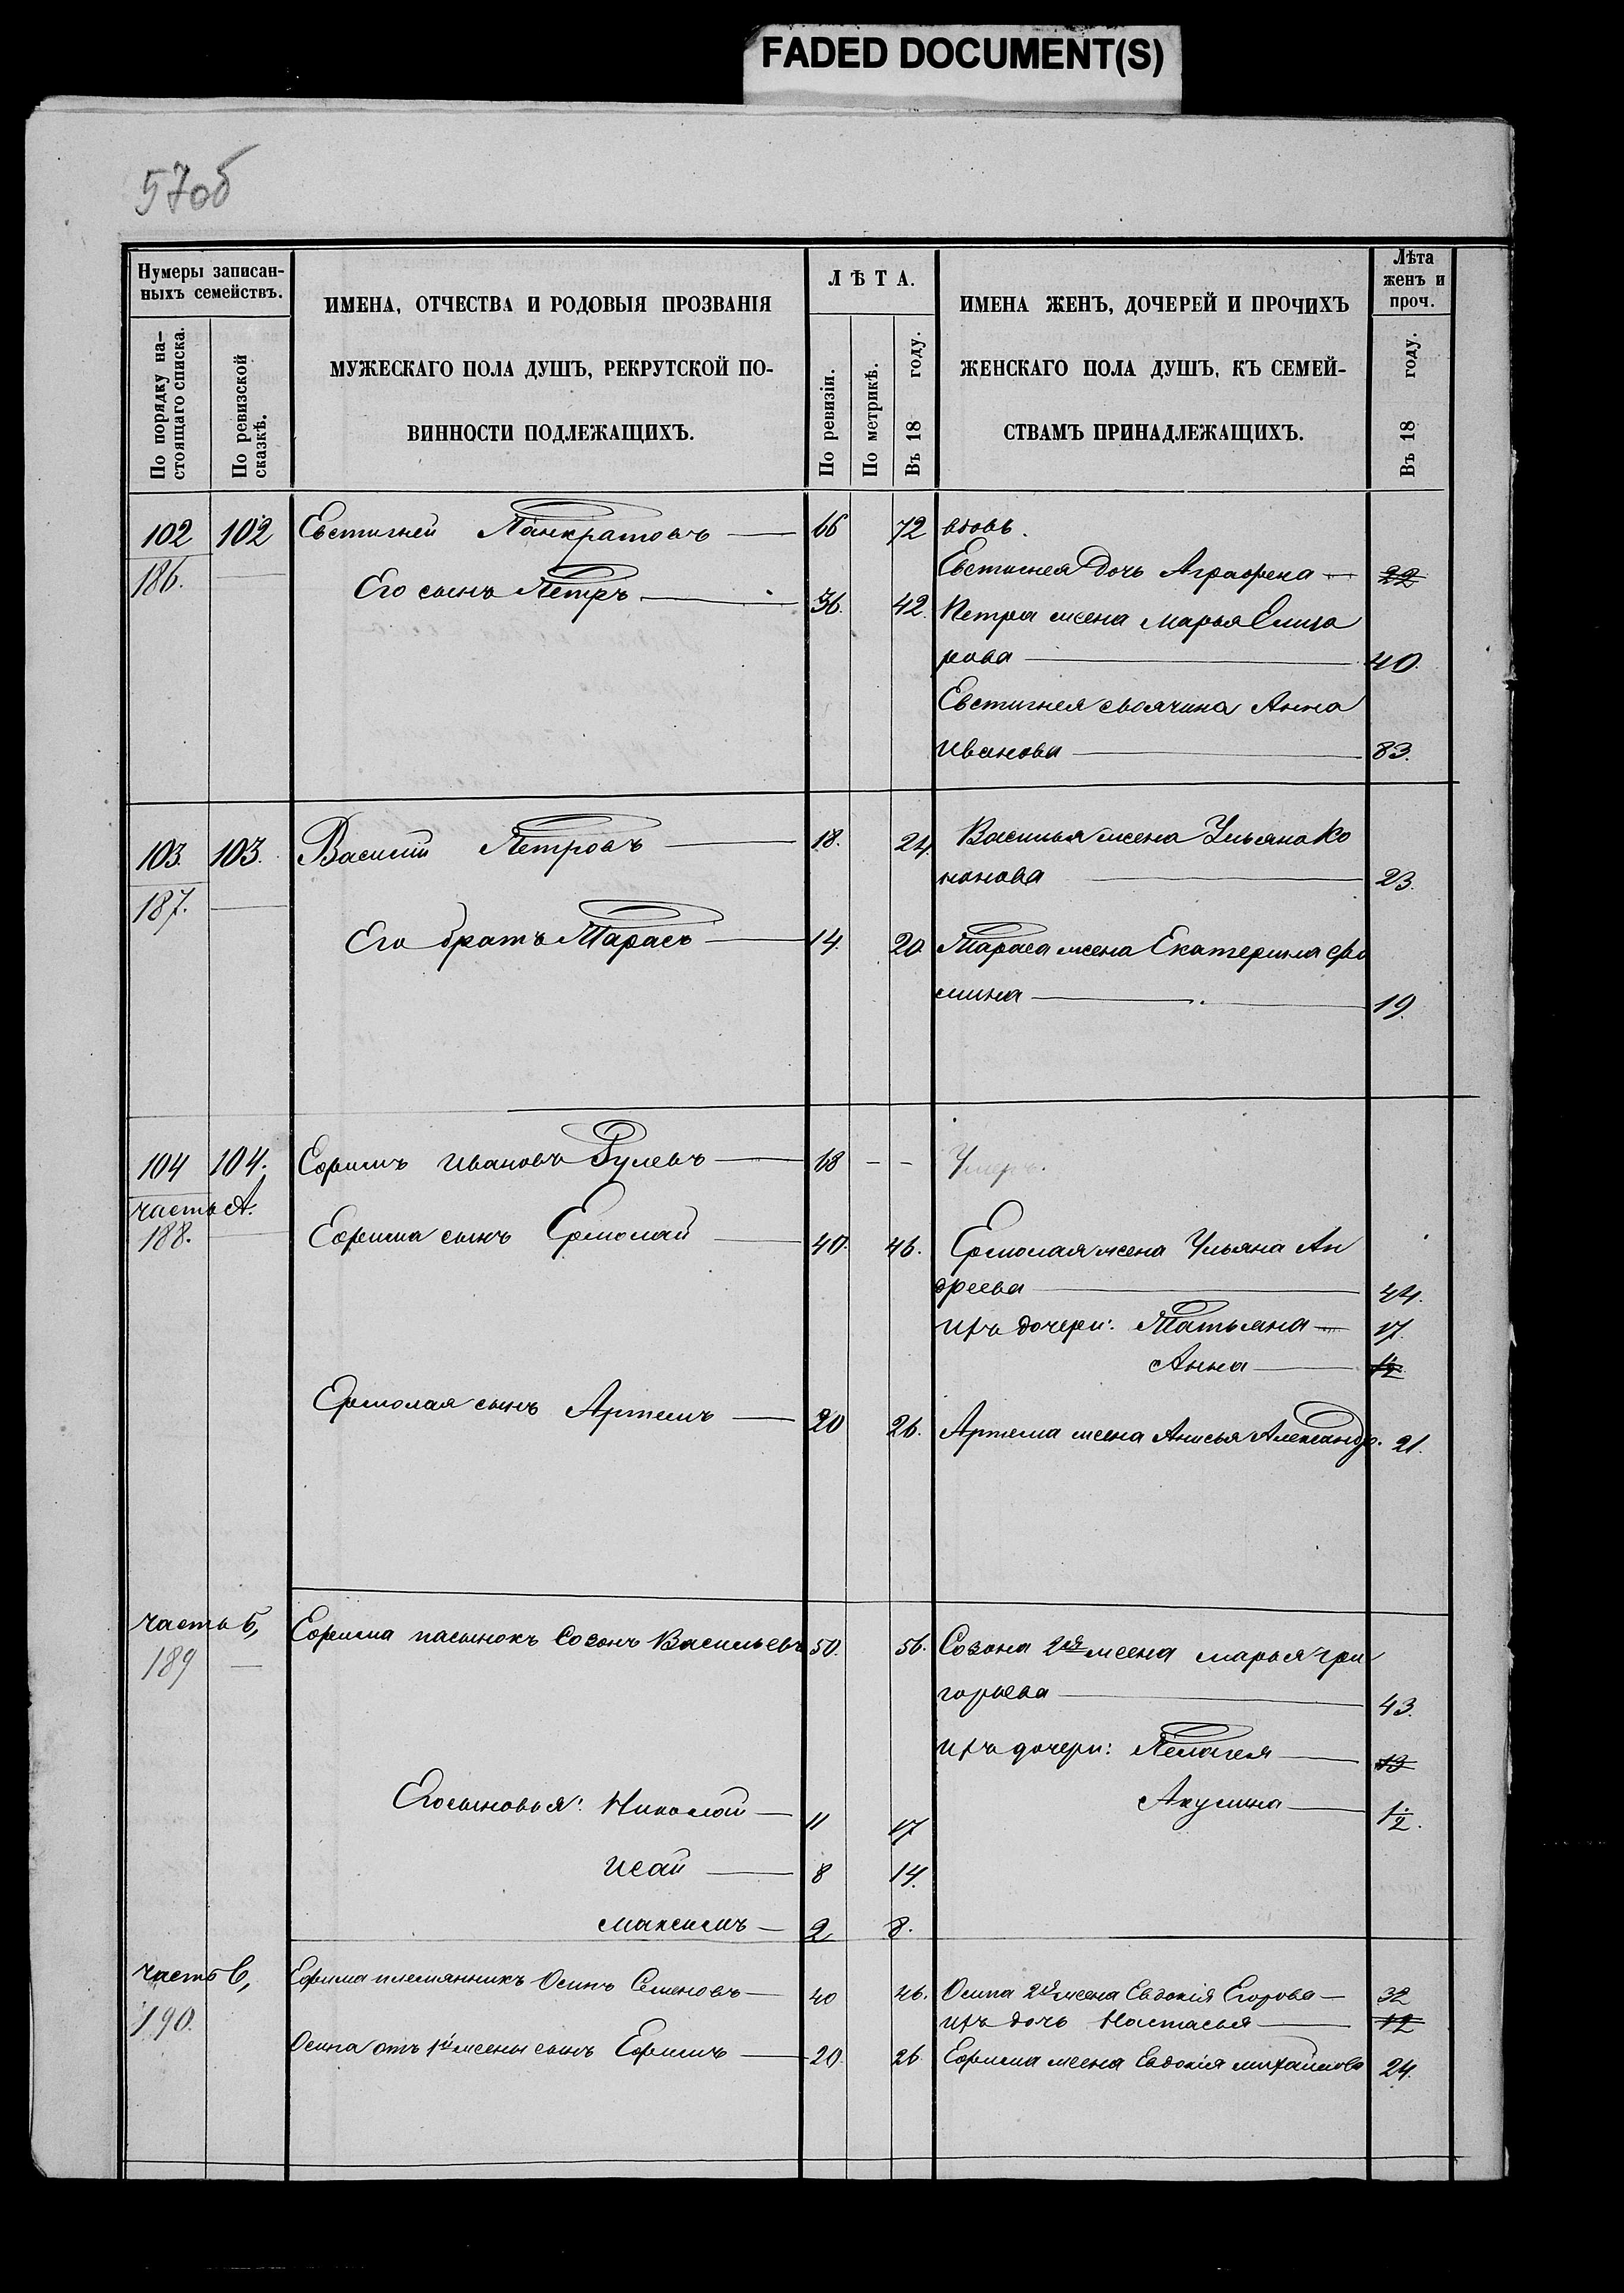 FADED DOCUMENT(S)
57об
Нумеры записан-
ныхъ семействъ.
По порядку на-
стоящаго списка.
По ревизской
сказкѣ.
ИМЕНА, ОТЧЕСТВА И РОДОВЫЯ ПРОЗВАНІЯ
МУЖЕСКАГО ПОЛА ДУШЪ, РЕКРУТСКОЙ ПО-
ВИННОСТИ ПОДЛЕЖАЩИХЪ.
ЛѢТА.
По ревизіи.
По метрикѣ.
Въ 18 году.
ИМЕНА ЖЕНЪ, ДОЧЕРЕЙ И ПРОЧИХЪ
ЖЕНСКАГО ПОЛА ДУШЪ, КЪ СЕМЕЙ-
СТВАМЪ ПРИНАДЛЕЖАЩИХЪ.
Лѣта
женъ и
проч.
Въ 18 году.
102 102 Евстигней Панкратовъ — 66 72 вдовъ.
186. Евстигнея дочь Аграфена — 22
Его сынъ Петръ — 36. 42. Петра жена Марья Елиза
рова — 40.
Евстигнея своячина Анна
Иванова — 83.
103. 103. Василій Петровъ — 18. 24. Василья жена Ульяна Ко
нонова — 23.
187.
Его братъ Тарасъ — 14. 20. Тараса жена Екатерина Фо
мина — 19.
104 104. Ефимъ Ивановъ Гулевъ — 68 - - Умеръ.
часть А.
188. Ефима сынъ Ермолай — 40. 46. Ермолая жена Ульяна Ан
дреева — 44.
ихъ дочери: Татьяна — 17.
Анна — 12
Ермолая сынъ Артемъ — 20 26. Артема жена Анисья Александр. 21.
часть б, Ефима пасынокъ Созонъ Васильевъ 50. 56. Созона 2я жена Марья Гри
189 горьева — 43.
ихъ дочери: Пелагея — 13
Его сыновья: Николай — 11 17 Акулина — 1/2.
Исай — 8 14.
Максимъ — 2 8.
часть в, Ефима племянникъ Осипъ Семеновъ — 40 46. Осипа 2я жена Евдокія Егорова — 32
190. ихъ дочь Настасья — 12
Осипа отъ 1й жены сынъ Ефимъ — 20. 26 Ефима жена Евдокія Михайлова 24.